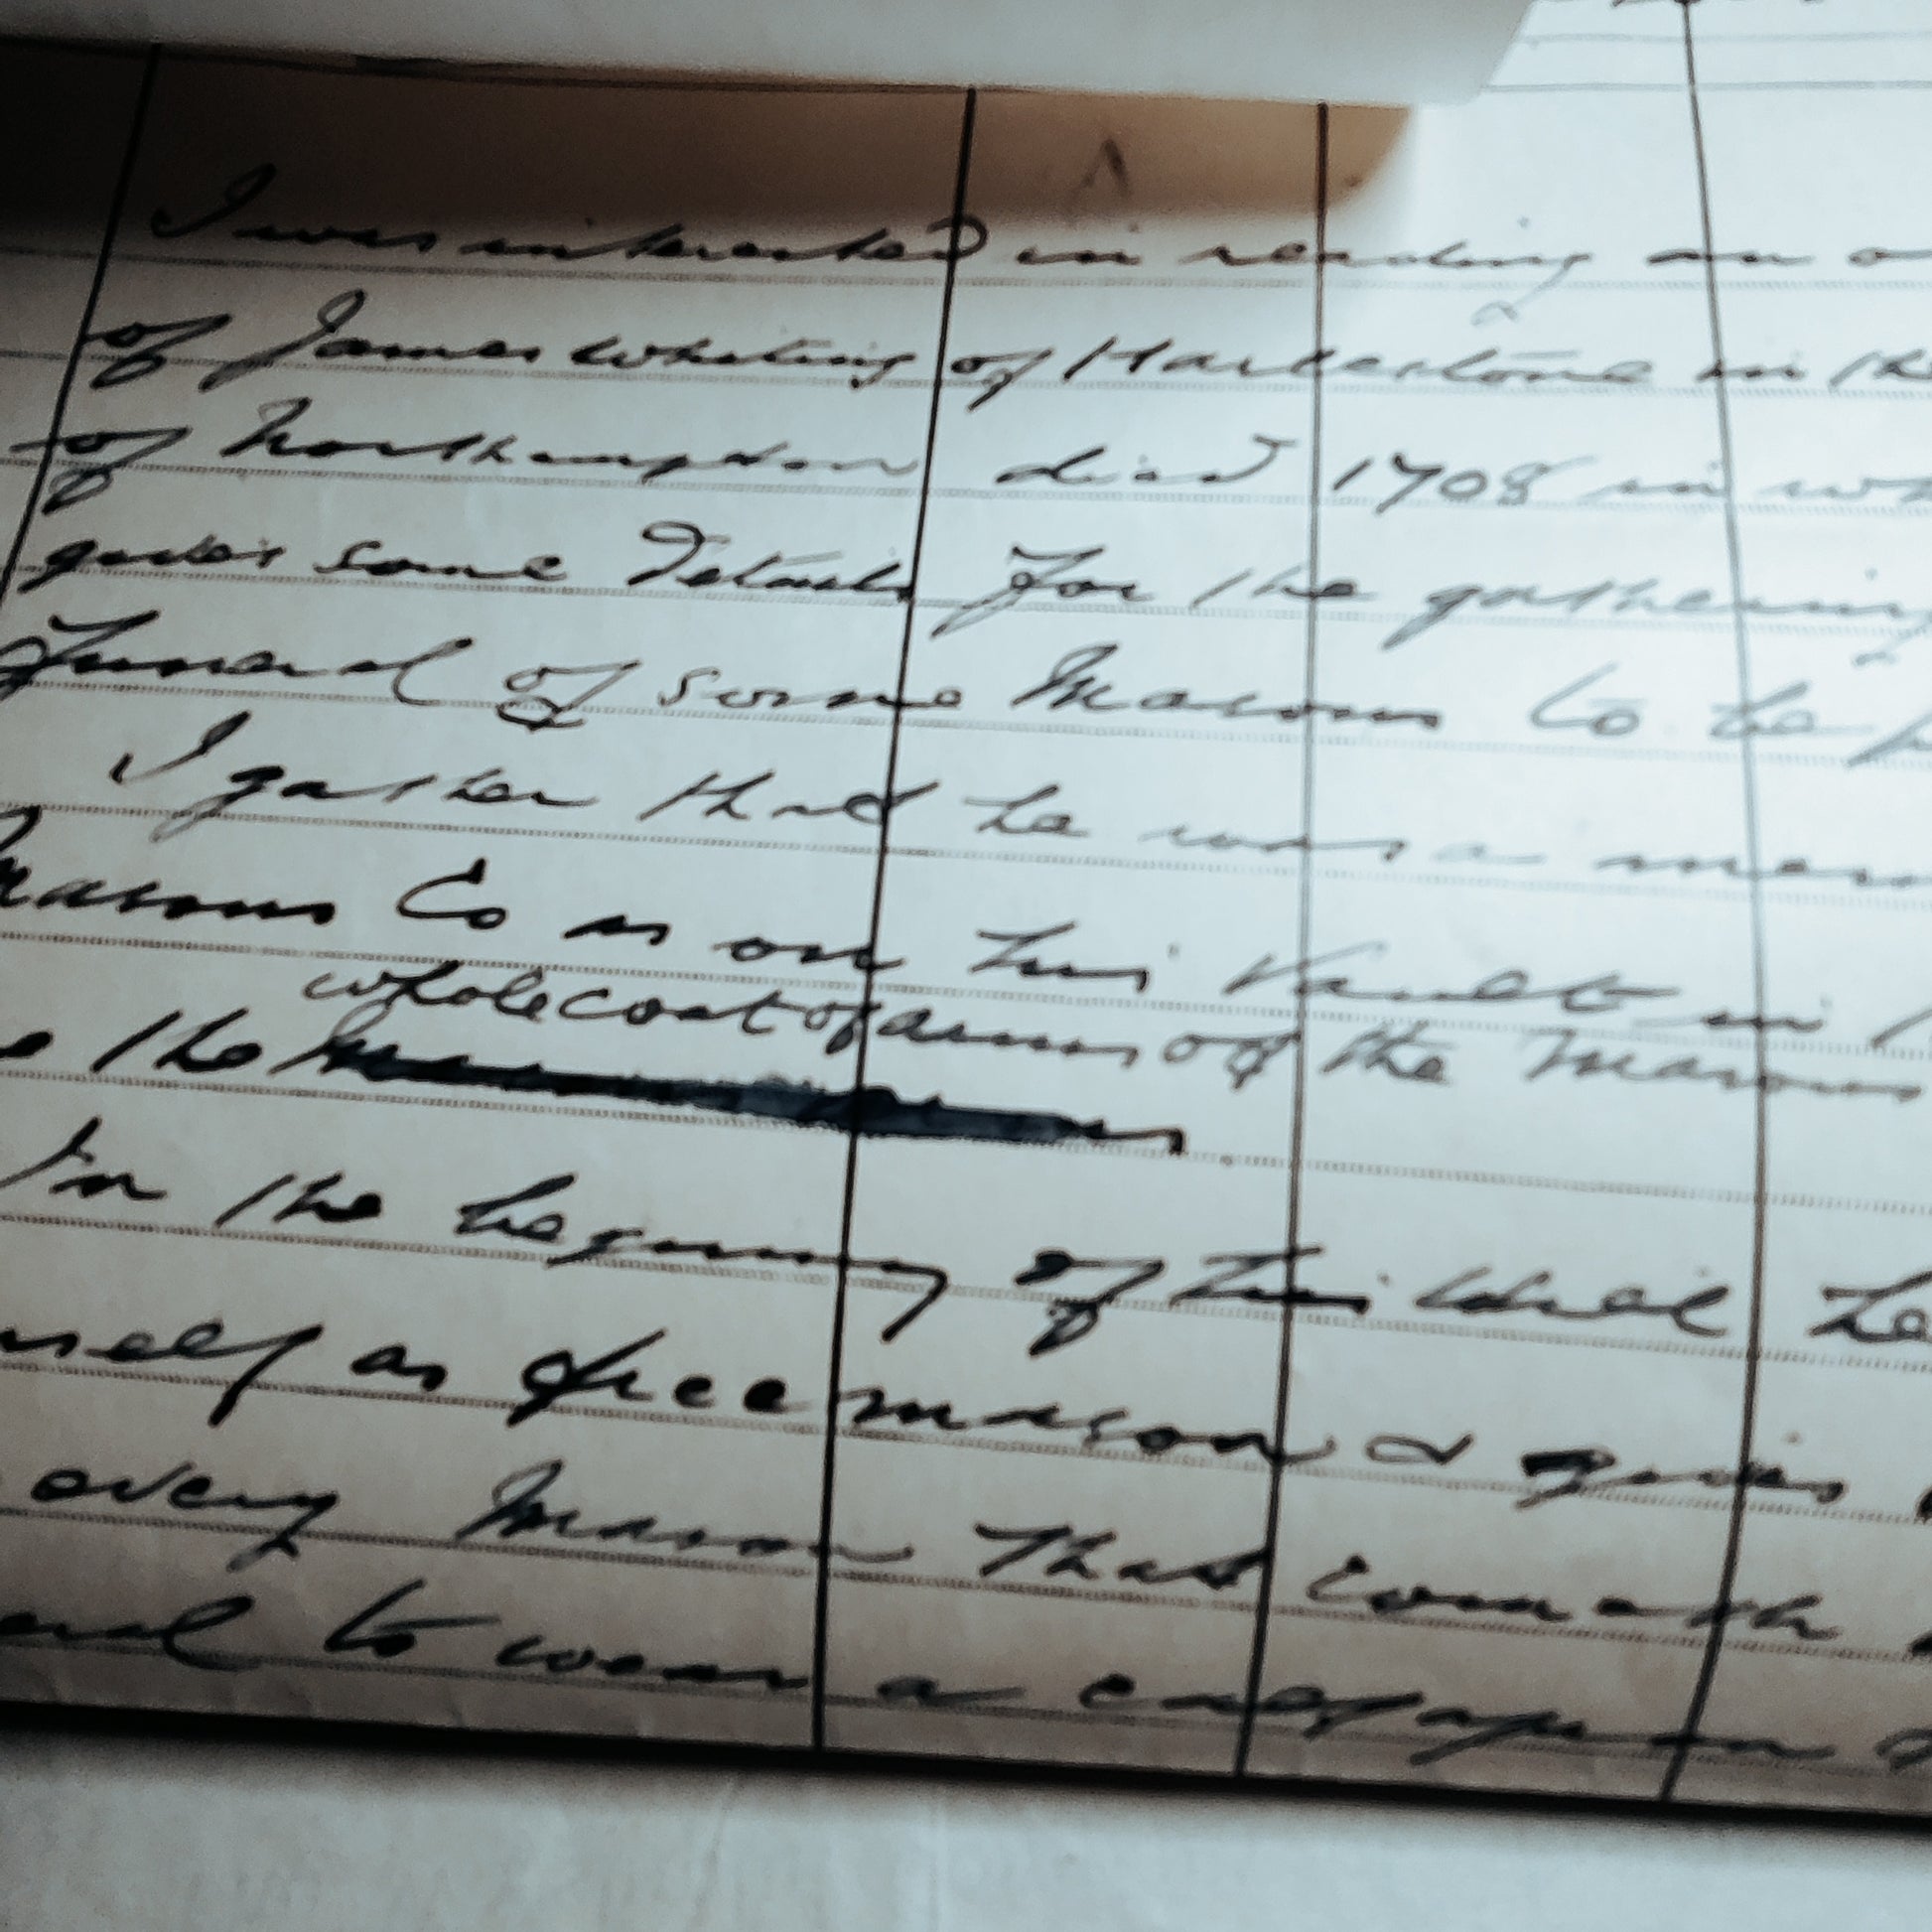 I was interested in reading an
of James Whiting of Harlestone in the
of Northampton died 1708 in
gives some Details for the gathering
Funeral of some Masons to be
I gather that he was a
Masons Co as on his Vault in
whole coat of arms of the Masons
the
In the beginning of his Will he
as freemason & gives
every Mason that cometh
to wear a